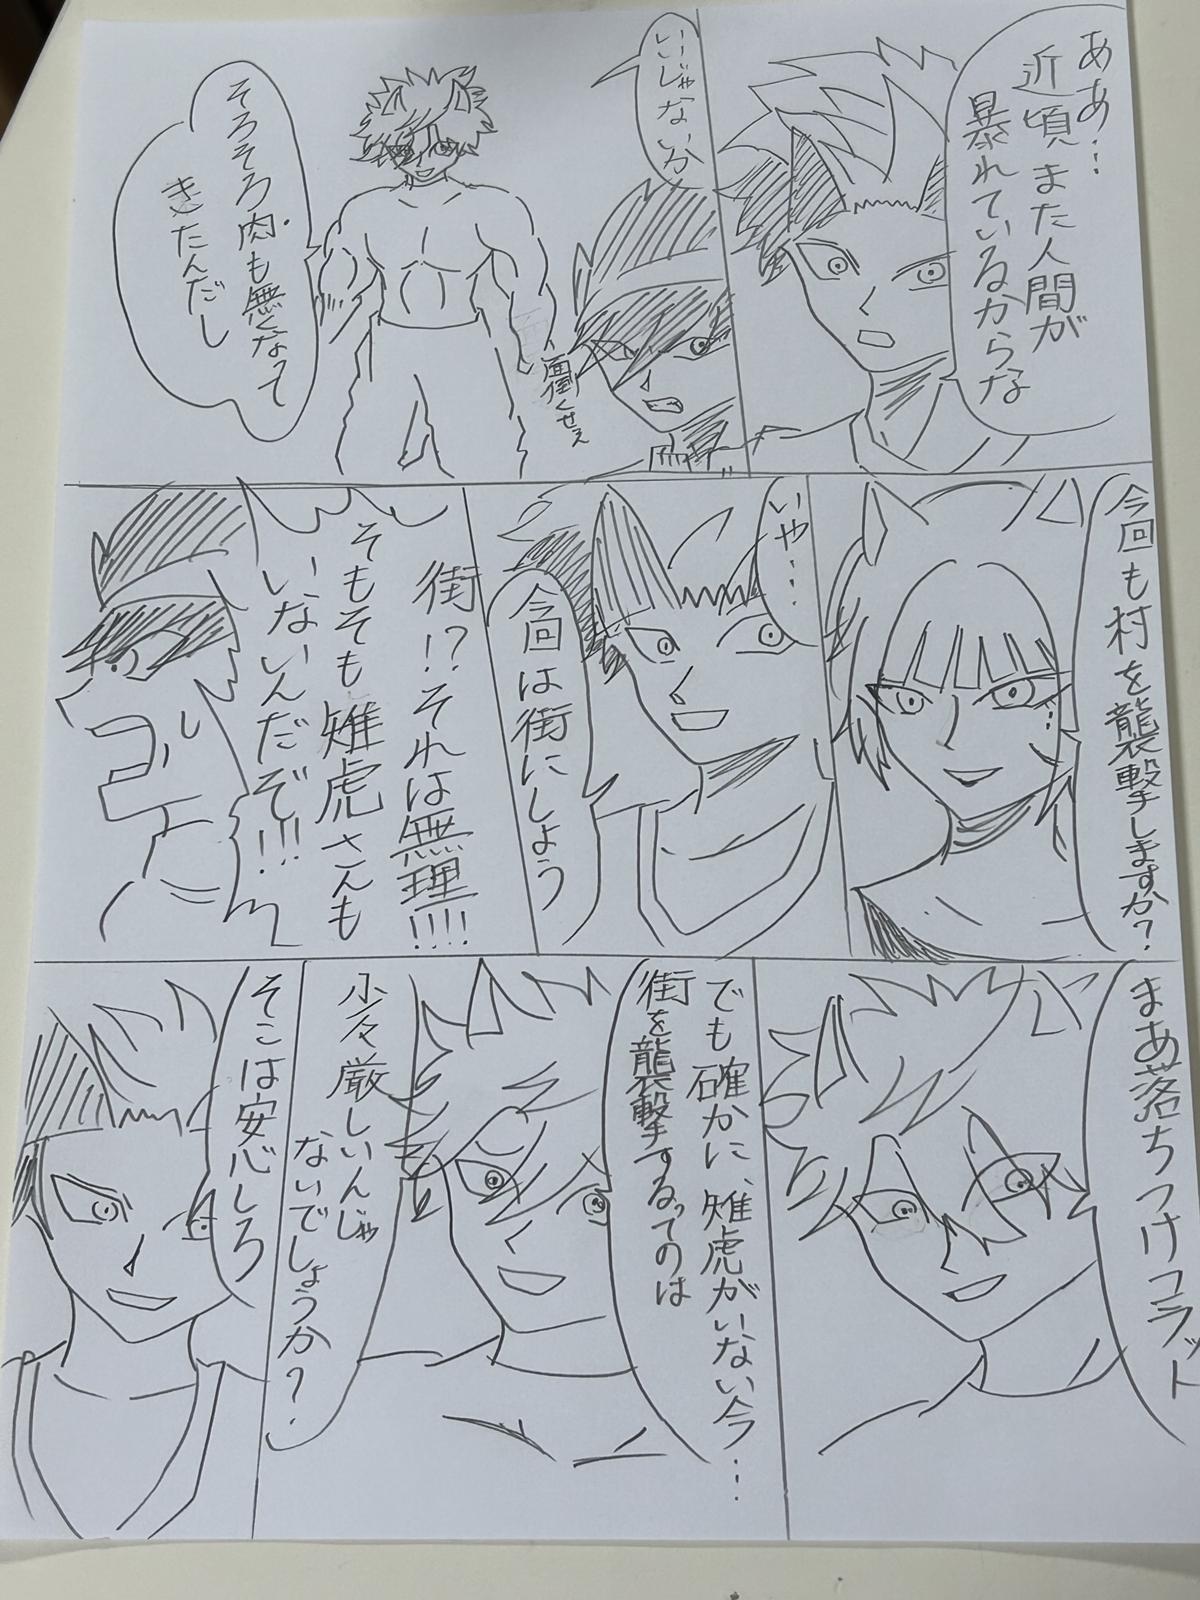 ああ…
近頃また人間が
暴れているからな
いいじゃないか
面倒くせぇ
そろそろ肉も無くなって
きたんだし
今回も村を襲撃しますか?
いや…
今回は街にしよう
街!?それは無理!!!!
そもそも雉虎さんも
いないんだぞ!!!
まあ落ちつけコラット
でも確かに、雉虎がいない今…
街を襲撃するってのは
少々厳しいんじゃ
ないでしょうか?
そこは安心しろ